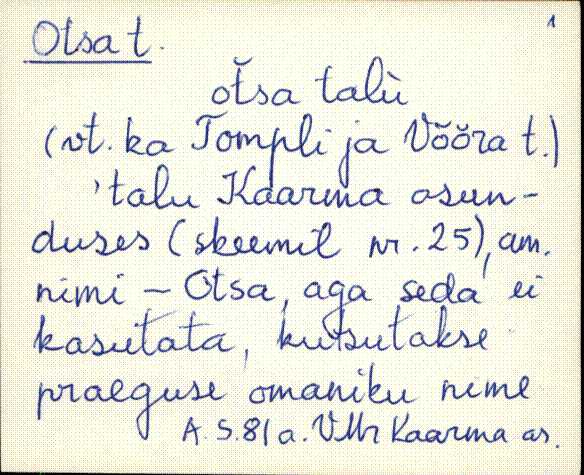 1
Otsa t.
ŏtsa talù
(vt. ka Tompli ja Võõra t.)
'talu Kaarma asun-
duses (skeemil nr. 25), am.
nimi – Otsa, aga seda ei
kasutata, kutsutakse
praeguse omaniku nime
A.S. 81 a. VMr Kaarma as.